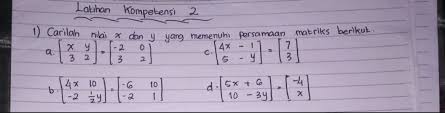 Latihan Kompetensi 2
1) Carilah nilai x dan y yang memenuhi persamaan matriks berikut.
a. [x y; 3 2] = [-2 0; 3 2] c. [4x - 1; 5 - y] = [7; 3]
b. [4x 10; -2 ½y] = [-6 10; -2 1] d. [5x + 6; 10 - 3y] = [-4; x]